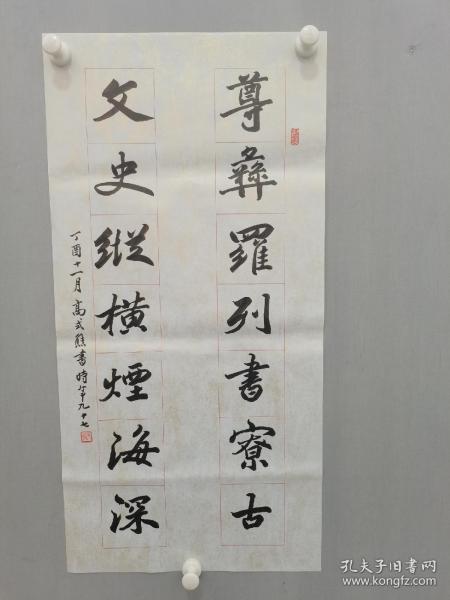 尊彝羅列書寮古
文史縱橫煙海深
丁酉十一月 高式熊書 時年九十七
孔夫子旧书网
www.kongfz.com